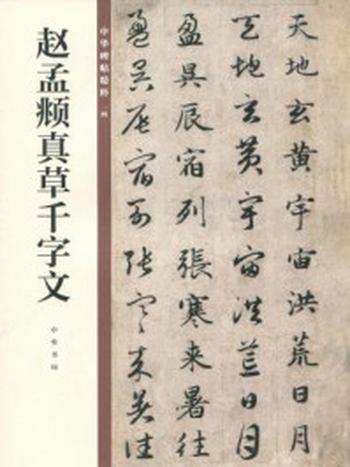 赵孟𫖯真草千字文
中华书局
中华碑帖精粹
天地玄黄宇宙洪荒日月
天地玄黄宇宙洪荒日月
盈昃辰宿列張寒来暑往
盈昃辰宿列張寒来暑往